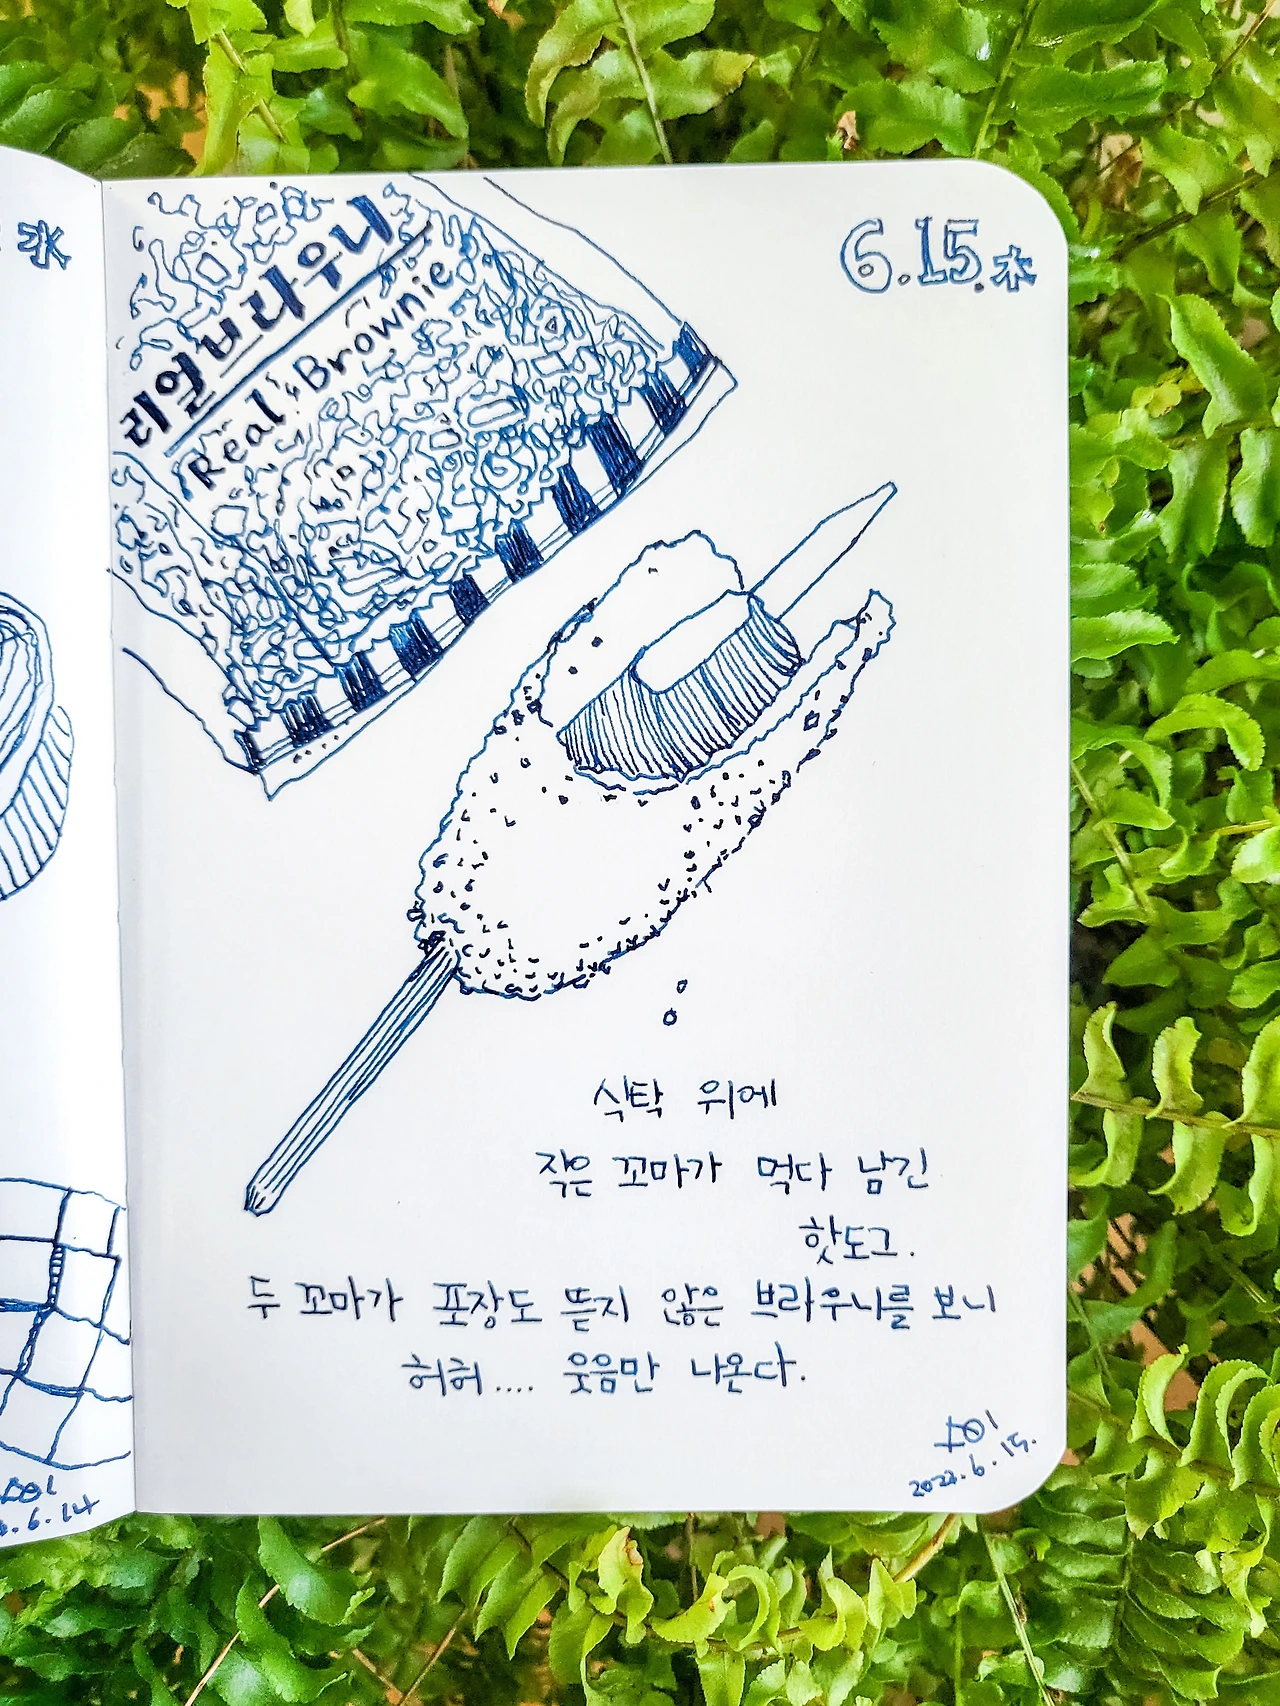 6.15.木
리얼브라우니
Real Brownie
식탁 위에
작은 꼬마가 먹다 남긴
핫도그.
두 꼬마가 포장도 뜯지 않은 브라우니를 보니
허허.... 웃음만 나온다.
2022.6.15.
水
.6.14